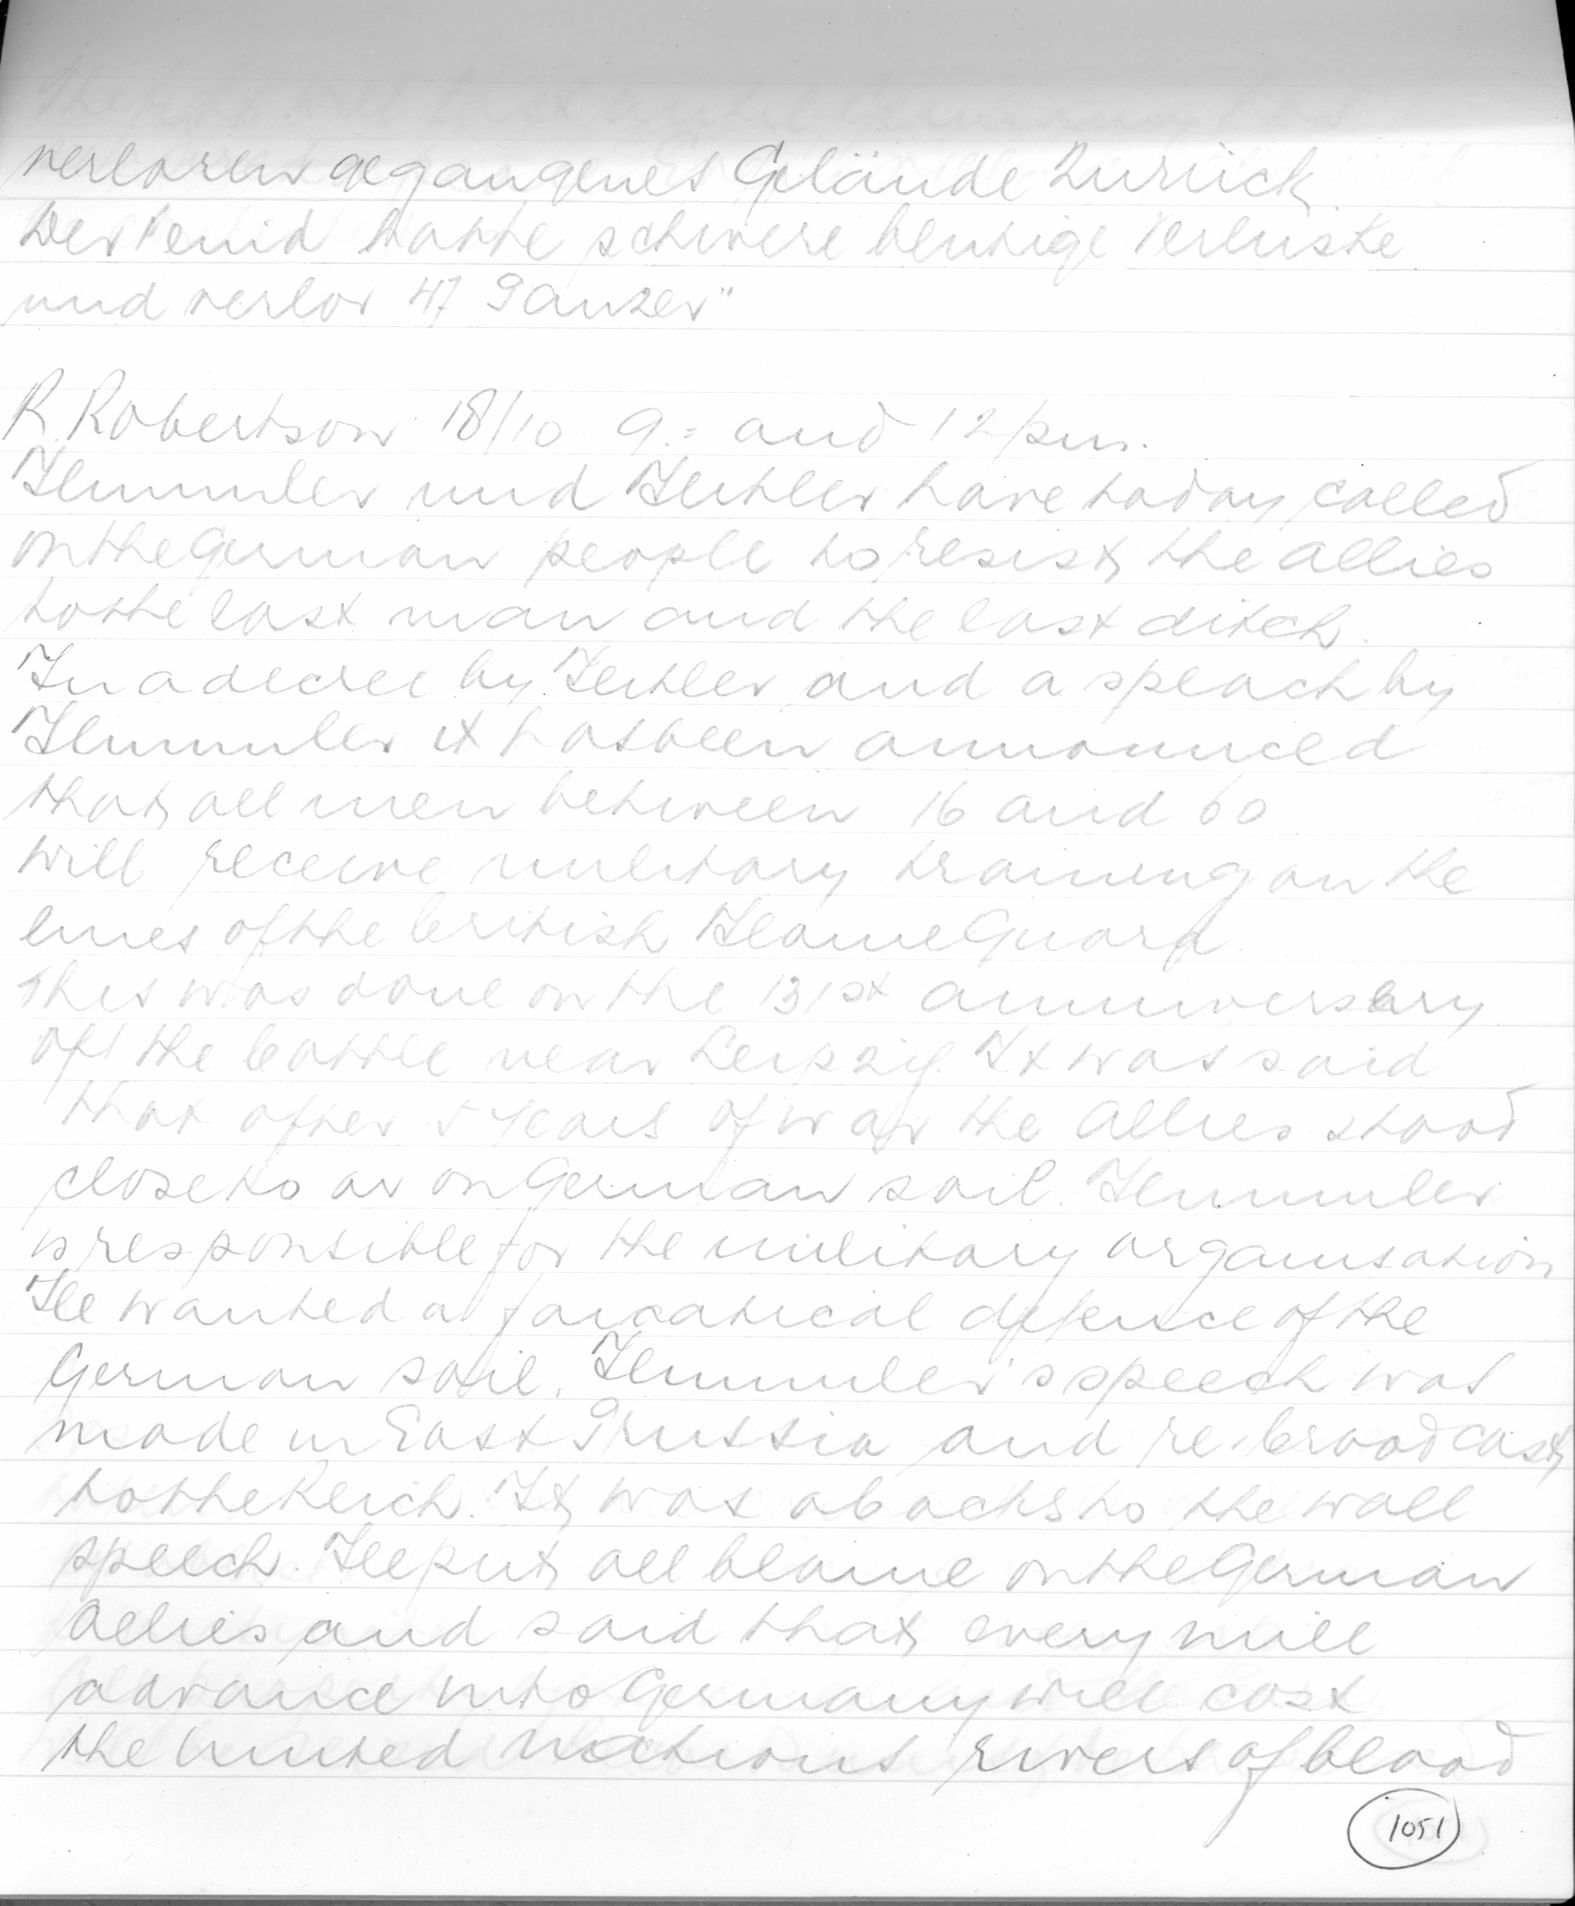 verloren gegangenes Gelände zurück
Der Feind hatte schwere blutige Verluste
und verlor 47 Panzer"
R. Robertson 18/10 9.= and 12 pm.
Himmler und Hitler have today called
on the German people to resist the allies
to the last man and the last ditch.
In a decree by Hitler and a speach by
Himmler it has been announced
that all men between 16 and 60
will receive military training on the
lines of the british Home Guard
This was done on the 131st anniversary
of the battle near Leipzig. It was said
that after 5 years of war the allies stood
close to or on German soil. Himmler
is responsible for the military organisation
He wanted a fanatical defence of the
German soil. Himmler's speech was
made in East Prussia and re-broadcast
to the Reich. It was a backs to the wall
speech. He put all blame on the German
allies and said that every mile
advance into Germany will cost
the united nations rivers of blood
1051